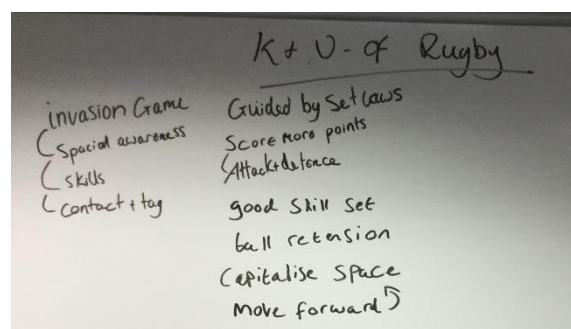 K + U - of Rugby
invasion Game
Spacial awareness
skills
contact + tag
Guided by Set Laws
Score more points
Attack + defence
good Skill set
ball retension
Capitalise Space
Move forward